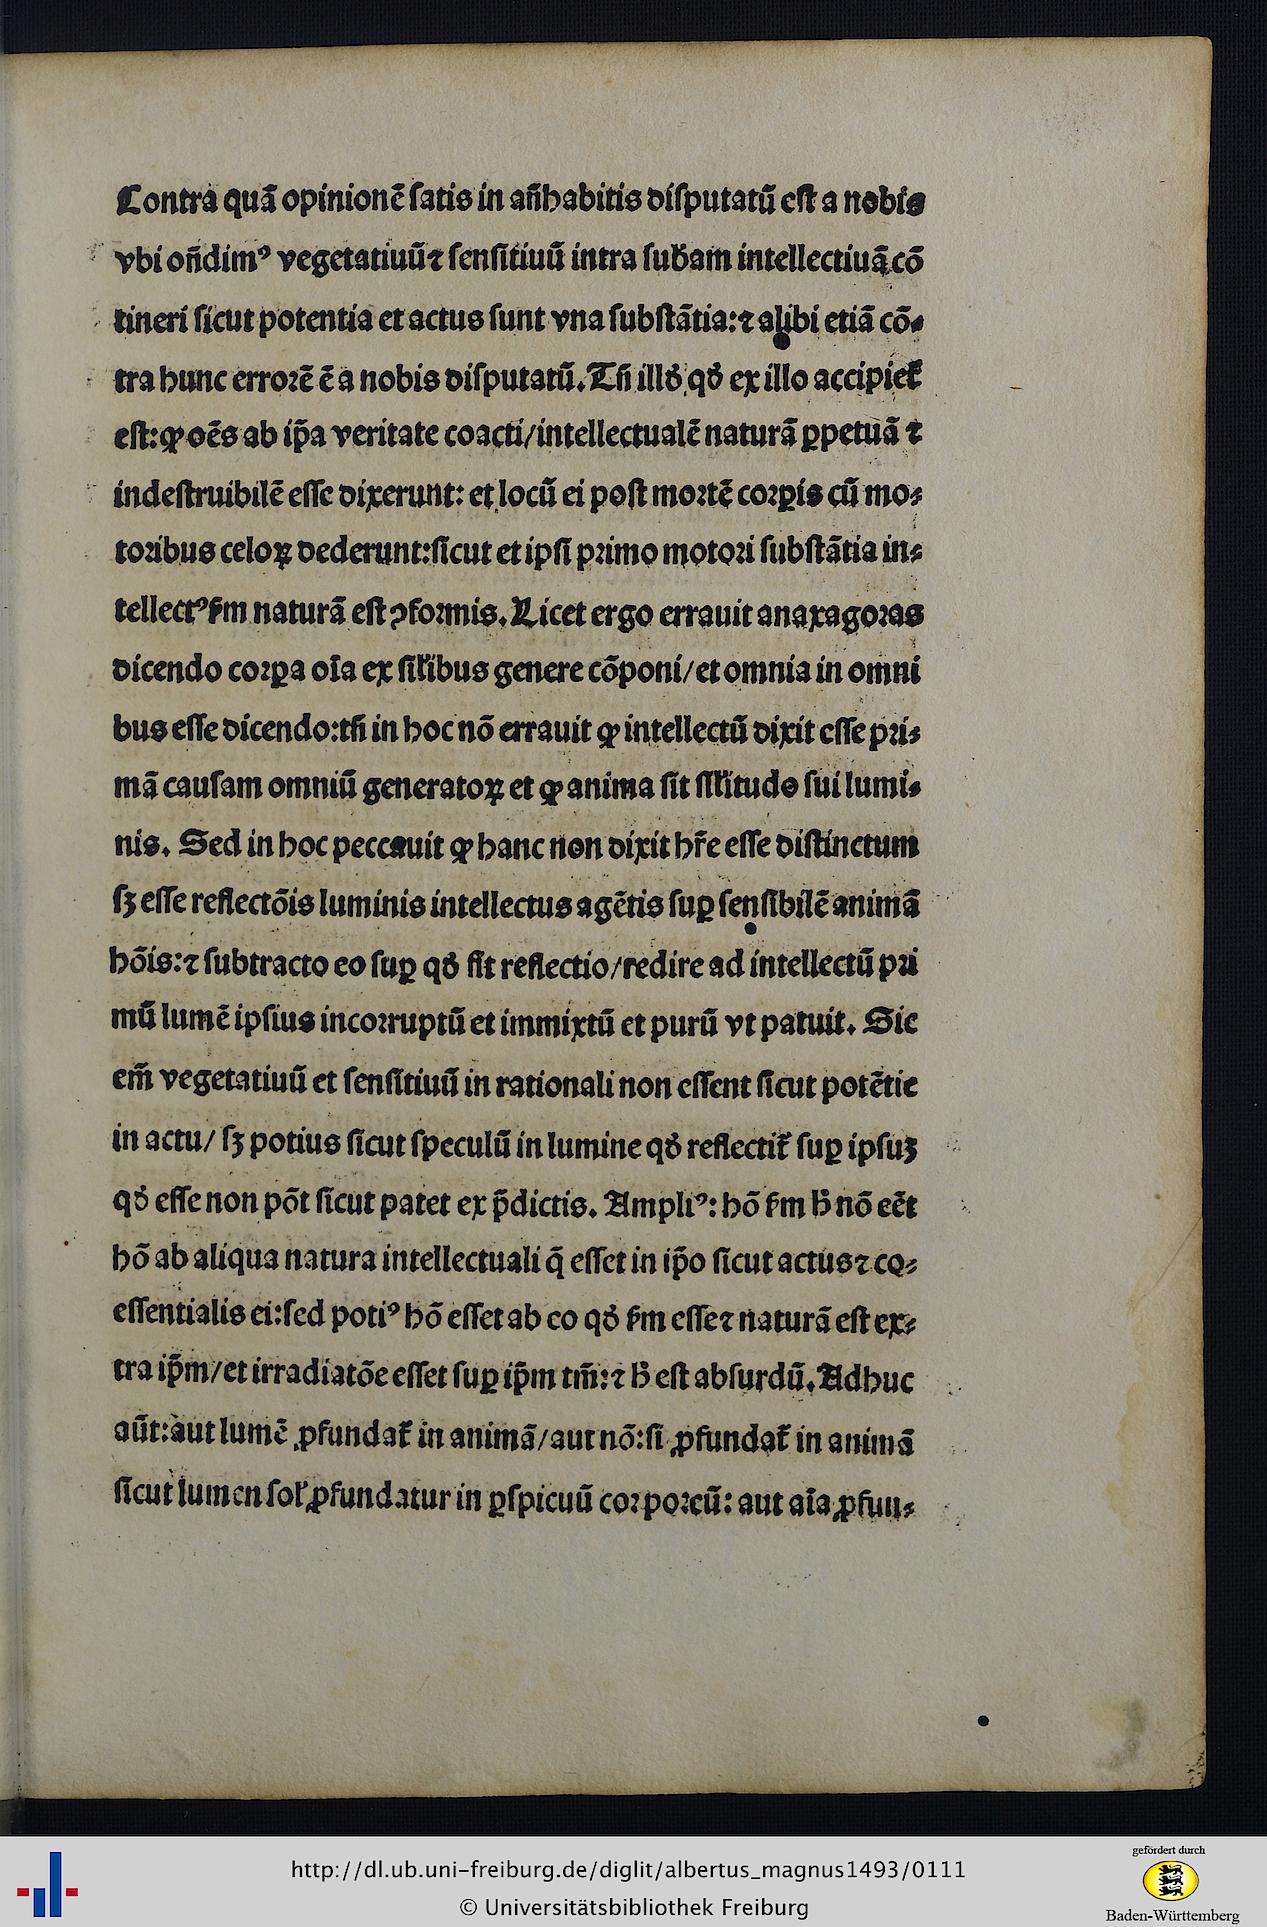 Contra quā opinionē ſatis in an̄habitis diſputatū eſt a nobis
vbi on̄dimꝰ vegetatiuū⁊ ſenſitiuū intra ſubam intellectiuā cō
tineri ſicut potentia et actus ſunt vna ſubſtātia:⁊ alibi etiā cō⸗
tra hunc errorē ē a nobis diſputatū. Tn̄ illd̓ qd̓ ex illo accipiet᷑
eſt:ꝙ oēs ab ip̄a veritate coacti/intellectualē naturā ꝑpetuā ⁊
indeſtruibilē eſſe dixerunt: et locū ei poſt mortē corꝑis cū mo⸗
toribus celoꝝ dederunt:ſicut et ipſi primo motori ſubſtātia in⸗
tellectꝰ ẜm naturā eſt ꝯformis. Licet ergo errauit anaxagoras
dicendo corꝑa oīa ex ſil̓ibus genere cōponi/et omnia in omni
bus eſſe dicendo:tn̄ in hoc nō errauit ꝙ intellectū dixit eſſe pri⸗
mā cauſam omniū generatoꝝ et ꝙ anima ſit ſil̓itudo ſui lumi⸗
nis. Sed in hoc peccauit ꝙ hanc non dixit hr̄e eſſe diſtinctum
ſꝫ eſſe reflectōis luminis intellectus agētis ſuꝑ ſenſibilē animā
hōis:⁊ ſubtracto eo ſuꝑ qd̓ fit reflectio/redire ad intellectū pri
mū lumē ipſius incorruptū et immixtū et purū vt patuit. Sic
em̄ vegetatiuū et ſenſitiuū in rationali non eſſent ſicut potētie
in actu/ ſꝫ potius ſicut ſpeculū in lumine qd̓ reflectit᷑ ſuꝑ ipſuꝫ
qd̓ eſſe non pōt ſicut patet ex p̄dictis. Ampliꝰ: hō ẜm h̓ nō eēt
hō ab aliqua natura intellectuali q̄ eſſet in ip̄o ſicut actus⁊ co⸗
eſſentialis ei:ſed potiꝰ hō eſſet ab eo qd̓ ẜm eſſe⁊ naturā eſt ex⸗
tra ip̄m/et irradiatōe eſſet ſuꝑ ip̄m tm̄:⁊ h̓ eſt abſurdū. Adhuc
aūt:aut lumē ꝓfundat᷑ in animā/aut nō:ſi ꝓfundat᷑ in animā
ſicut lumen ſol̓ ꝓfundatur in ꝑſpicuū corporeū: aut aīa ꝓfun⸗
http://dl.ub.uni-freiburg.de/diglit/albertus_magnus1493/0111
© Universitätsbibliothek Freiburg
gefördert durch
Baden-Württemberg